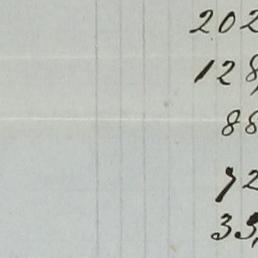 202
128
88
72
33